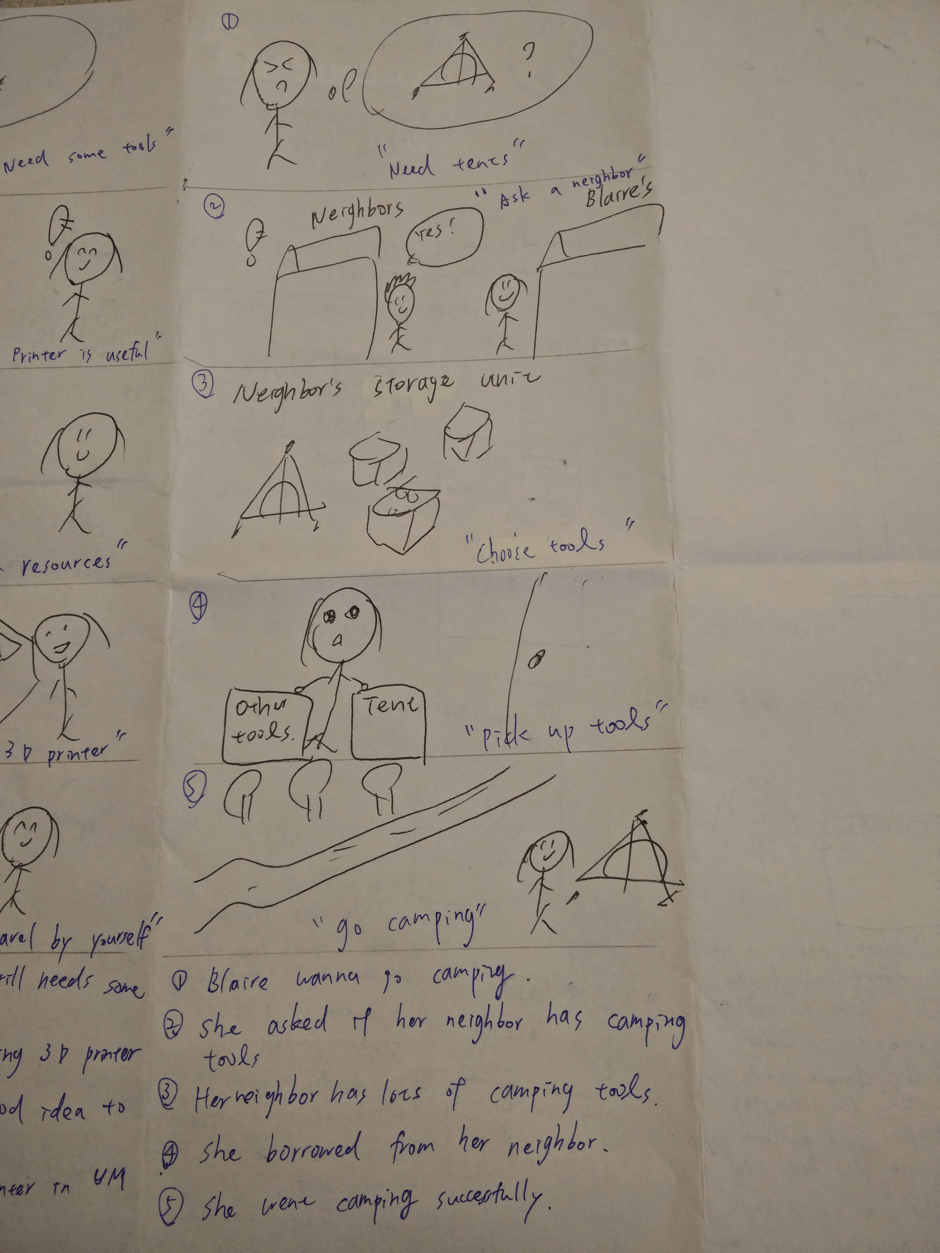 Need some tools"
Printer is useful"
resources"
3D printer"
by yourself"
needs some
3D printer
idea to
in
①
?
"Need tents"
②
Neighbors
Yes!
"Ask a neighbor"
Blaire's
③ Neighbor's storage unit
"Choose tools"
④
Other
tools.
Tent
"pick up tools"
⑤
"go camping"
① Blaire wanna go camping.
② she asked if her neighbor has camping
tools
③ Her neighbor has lots of camping tools.
④ she borrowed from her neighbor.
⑤ she went camping succesfully.